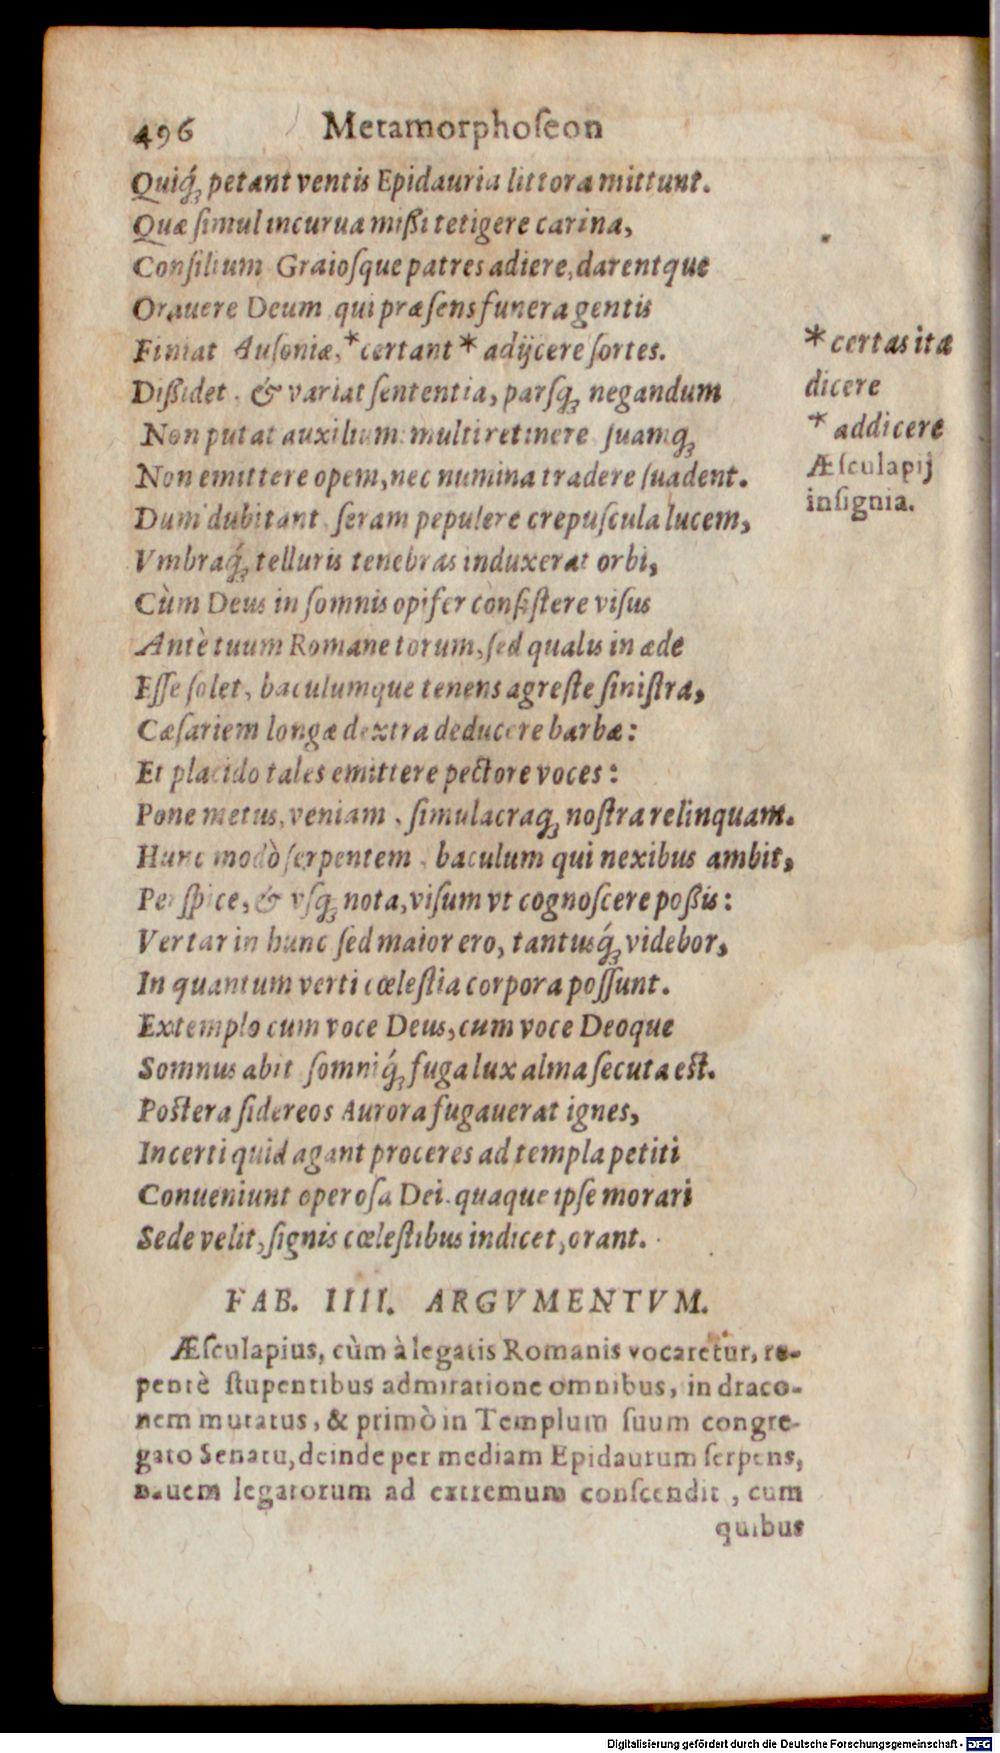 496 Metamorphoſeon
Quiq́ꝫ petant ventis Epidauria littora mittunt.
Quæ ſimul incurua miſſi tetigere carina,
Conſilium Graioſque patres adiere, darentque
Orauere Deum qui præſens funera gentis
Finiat Auſoniæ, *certant * adijcere ſortes.
Diſſidet. & variat ſententia, parſqꝫ negandum
Non putat auxilium: multi retinere ſuamqꝫ
Non emittere opem, nec numina tradere ſuadent.
Dum dubitant ſeram pepulere crepuſcula lucem,
Vmbraq́ꝫ telluris tenebras induxerat orbi,
Cùm Deus in ſomnis opifer conſiſtere viſus
Antè tuum Romane torum, ſed qualis in æde
Eſſe ſolet, baculumque tenens agreſte ſiniſtra,
Cæſariem longæ dextra deducere barbæ:
Et placido tales emittere pectore voces:
Pone metus, veniam, ſimulacraqꝫ noſtra relinquam.
Hunc modò ſerpentem, baculum qui nexibus ambit,
Perſpice, & vſqꝫ nota, viſum vt cognoſcere poſſis:
Vertar in hunc ſed maior ero, tantusq́ꝫ videbor,
In quantum verti cœleſtia corpora poſſunt.
Extemplo cum voce Deus, cum voce Deoque
Somnus abit ſomniq́ꝫ fuga lux alma ſecuta est.
Postera ſidereos Aurora fugauerat ignes,
Incerti quid agant proceres ad templa petiti
Conueniunt operoſa Dei. quaque ipſe morari
Sede velit, ſignis cœleſtibus indicet, orant.
* certas itæ
dicere
* addicere
Æſculapij
inſignia.
FAB. IIII. ARGVMENTVM.
Æſculapius, cùm à legatis Romanis vocaretur, re-
pentè ſtupentibus admiratione omnibus, in draco-
nem mutatus, & primò in Templum ſuum congre-
gato Senatu, deinde per mediam Epidaurum ſerpens,
nauem legatorum ad extremum conſcendit, cum
quibus
Digitalisierung gefördert durch die Deutsche Forschungsgemeinschaft - DFG